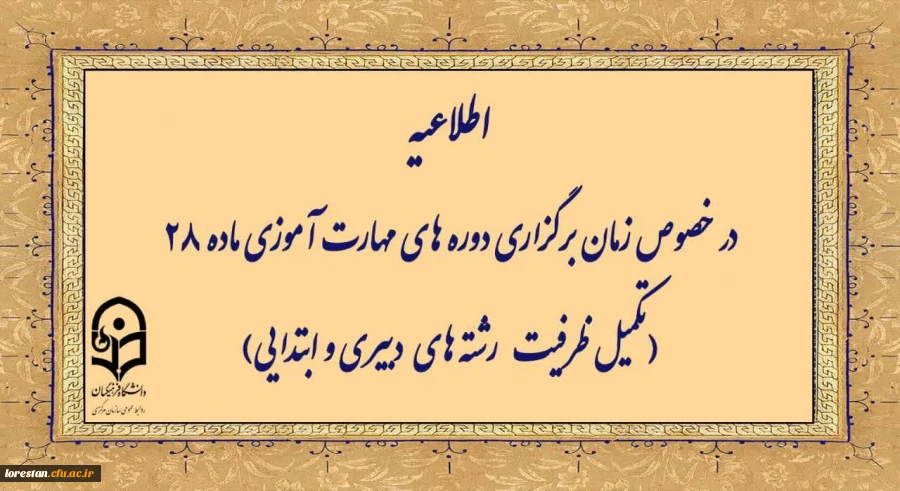 اطلاعیه
در خصوص زمان برگزاری دوره های مهارت آموزی ماده ۲۸
(تکمیل ظرفیت رشته های دبیری و ابتدایی)
دانشگاه فرهنگیان
روابط عمومی سازمان مرکزی
lorestan.cfu.ac.ir